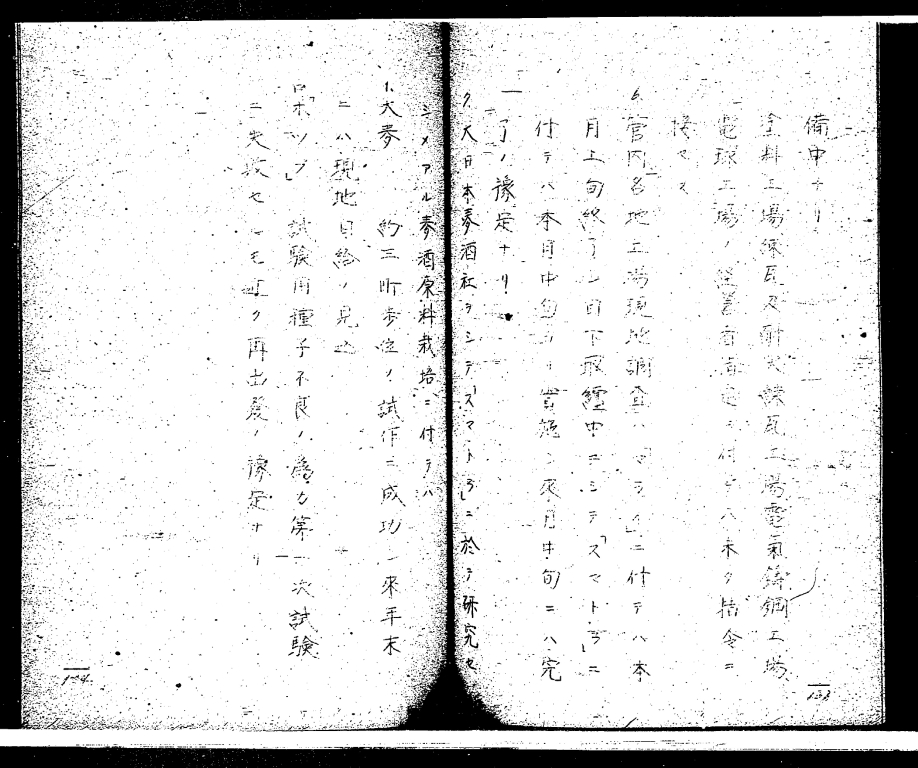 備中ナリ
塗料工場煉瓦及耐火煉瓦工場電氣鋳鋼工場
電球工場ノ経営者指定ニ付テハ未ダ指令ニ
接セス
6.管内各地工場現地調査ハ「マライ」ニ付テハ本
月上旬終了シ目下取纏中ニシテ「スマトラ」ニ
付テハ本月中旬ヨリ實施シ來月中旬ニハ完
了ノ豫定ナリ
7.大日本麥酒社ヲシテ「スマトラ」ニ於テ研究セ
シメアル麥酒原料栽培ニ付テハ
イ.大麥 約三町歩位ノ試作ニ成功シ來年末
ニハ現地自給ノ見込
ロ.「ホップ」 試験用種子不良ノ爲カ第一次試験
ニ失敗セルモ近ク再出發ノ豫定ナリ
133
134